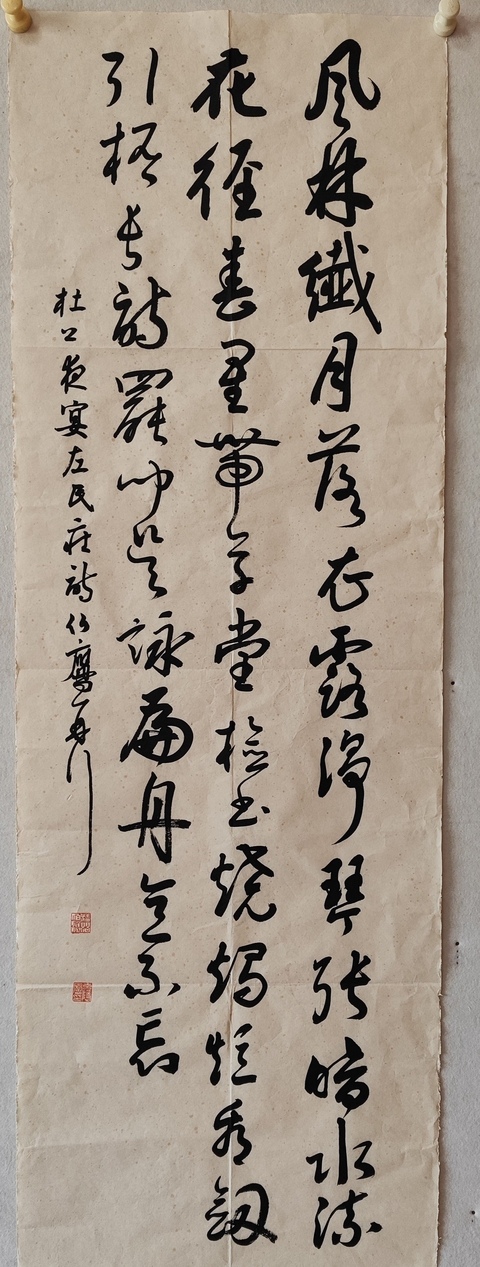 風林纖月落衣露淨琴張暗水流
花徑春星帶草堂檢書燒燭短看劔
引桮長詩罷聞吳詠扁舟意不忘
杜公夜宴左氏莊詩